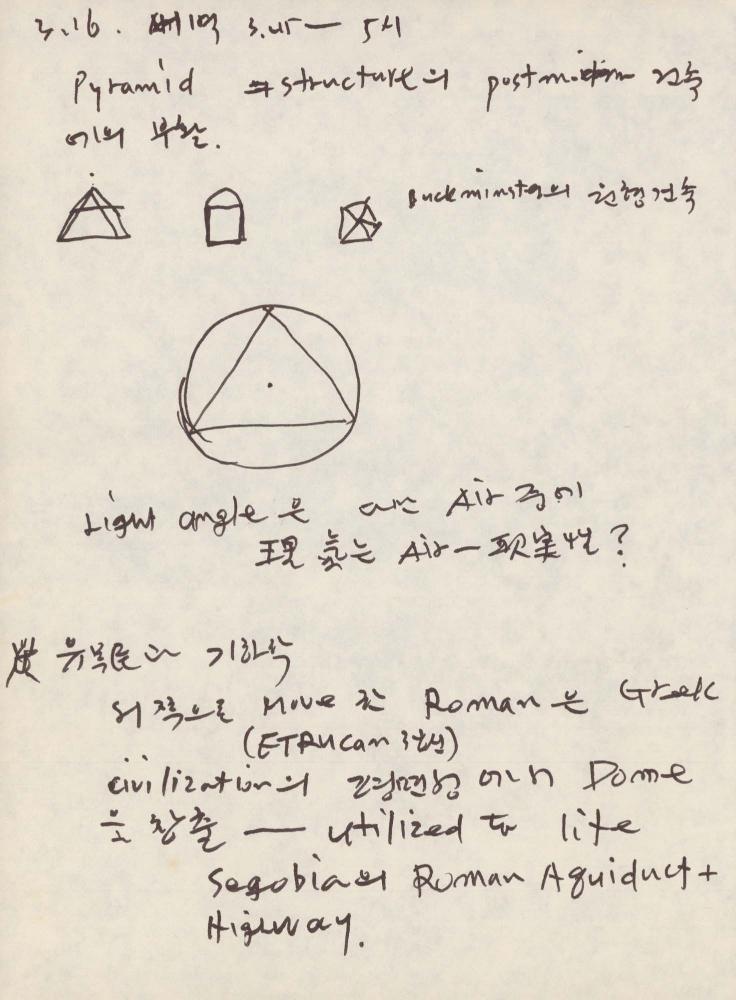 3.16. 새벽 3.45 — 5시
Pyramid structure의 postmodern 건축
에의 부활.
Buckminster의 원형건축
Light angle은 Air 중에
現象는 Air — 現実性?
유목民과 기하학
서쪽으로 Move 한 Roman은 Greek
(ETRUcan
civilization의 평면성 에서 Dome
을 창출 — utilized to life
Segobia의 Roman Aquiduct +
Highway.